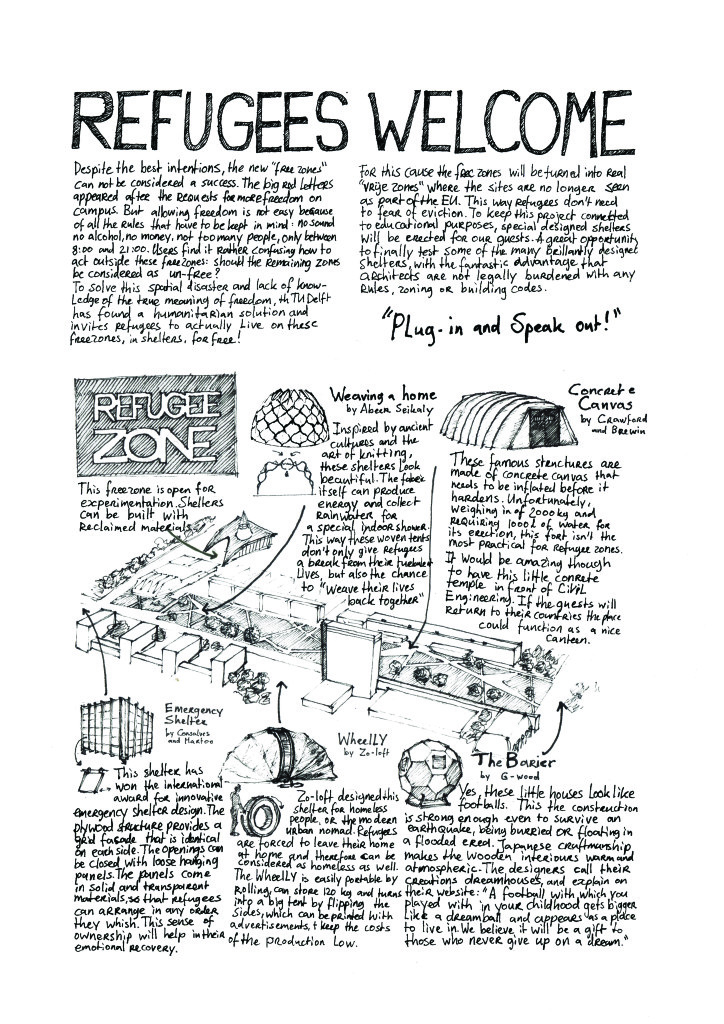 REFUGEES WELCOME
Despite the best intentions, the new "free zones"
can not be considered a success. The big red letters
appeared after the requests for more freedom on
campus. But allowing freedom is not easy because
of all the rules that have to be kept in mind: no sound
no alcohol, no money, not too many people, only between
8:00 and 21:00. Users find it rather confusing how to
act outside these freezones: should the remaining zones
be considered as un-free?
To solve this spatial disaster and lack of know-
ledge of the true meaning of freedom, th TU Delft
has found a humanitarian solution and
invites refugees to actually live on these
freezones, in shelters, for free!
For this cause the free zones will be turned into real
"vrije zones" where the sites are no longer seen
as part of the EU. This way refugees don't need
to fear of eviction. To keep this project connected
to educational purposes, special designed shelters
will be erected for our guests. A great opportunity
to finally test some of the many brillantly designed
shelters, with the fantastic advantage that
architects are not legally burdened with any
rules, zoning or building codes.
"Plug-in and Speak out!"
REFUGEE
ZONE
This freezone is open for
experimentation. Shelters
can be built with
reclaimed materials
Weaving a home
by Abeer Seikaly
Inspired by ancient
cultures and the
art of knitting,
these shelters look
beautiful. The fabric
itself can produce
energy and collect
rainwater for
a special indoor shower.
This way these woven tents
don't only give refugees
a break from their turbulent
lives, but also the chance
to "Weave their lives
back together"
Concrete
Canvas
by Crawford
and Brewin
These famous structures are
made of concrete canvas that
needs to be inflated before it
hardens. Unfortunately,
weighing in of 2000 kg and
requiring 1000 L of water for
its erection, this fort isn't the
most practical for refugee zones.
It would be amazing though
to have this little conrete
temple in front of Civil
Engineering. If the guests will
return to their countries the place
could function as a nice
canteen.
Emergency
Shelter
by Gonsalves
and
This shelter has
won the international
award for innovative
emergency shelter design. The
plywood structure provides a
grid facade that is identical
on each side. The openings can
be closed with loose hanging
panels. The panels come
in solid and transparent
materials, so that refugees
can arrange in any order
they whish. This sense of
ownership will help in their
emotional recovery.
WheelLY
by Zo-loft
Zo-loft designed this
shelter for homeless
people, or the modern
urban nomad. Refugees
are forced to leave their home
at home and therefore can be
considered as homeless as well.
The WheelLY is easily portable by
rolling, can store 120 kg and turns
into a big tent by flipping the
sides, which can be printed with
advertisements, t keep the costs
of the production low.
The Barier
by G-wood
Yes, these little houses look like
footballs. This the construction
is strong enough even to survive an
earthquake, being burried or floating in
a flooded ered. Japanese craftmanship
makes the wooden interiours warm and
atmospheric. The designers call their
creations dreamhouses, and explain on
their website: "A football with which you
played with in your childhood gets bigger
like a dreamball and appears as a place
to live in. We believe it will be a gift to
those who never give up on a dream."